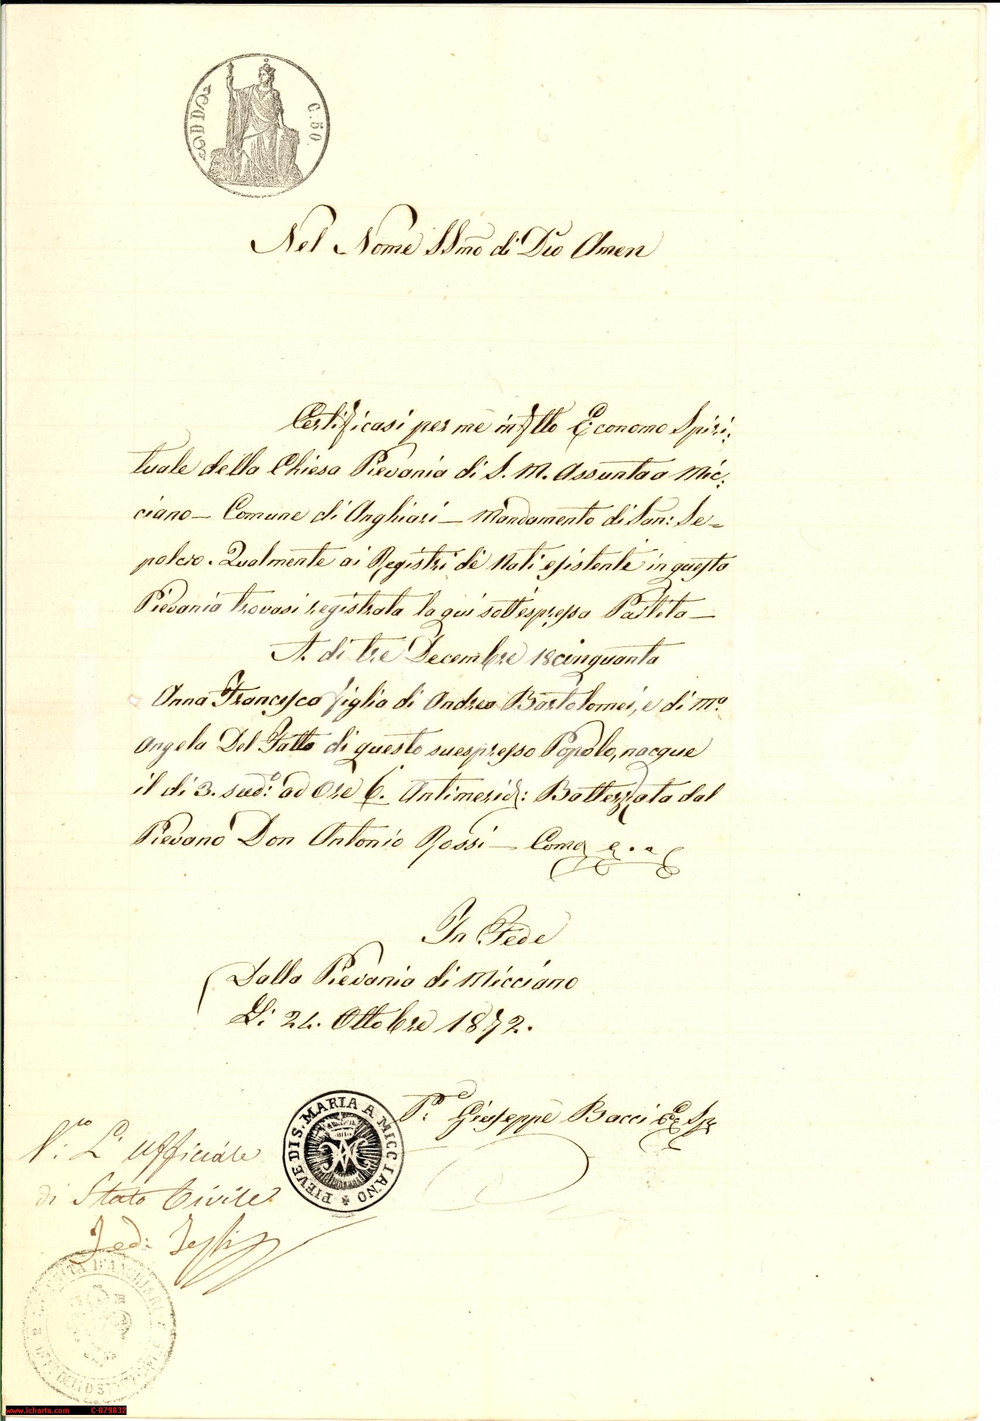 C. 50.
Nel Nome SSmo di Dio Amen
Certificasi per me infrtto Economo Spiri:
tuale della Chiesa Pievania di S. M. Assunta a Mic:
ciano — Comune di Anghiari — Mandamento di San: Se=
polcro. Qualmente ai Registri de Nati esistenti in questa
Pievania trovasi registrata la qui sottespressa Partita —
A. di tre Decembre 18cinquanta
Anna Francesca figlia di Andrea Bartolomei, e di Ma.
Angela Del Fatto di questo suespresso Popolo, nacque
il di 3. sudo: ad Ore 6. Antimerid: Battezzata dal
Pievano Don Antonio Rossi — Come
In Fede
Dalla Pievania di Micciano
Li 24. Ottobre 1872.
Pe. Giuseppe Bacci Ec. Sp.
PIEVE DI S. MARIA A MICCIANO
Vo. L' Ufficiale
di Stato Civile
Fed:
www.icharta.com C-879832